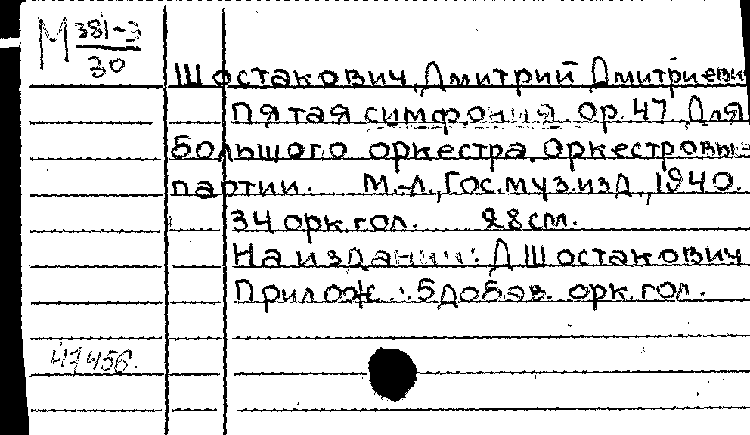 М 381-3
30
Шостакович, Дмитрий Дмитриеви
Пятая симфония Ор. 47 Для
большого оркестра. Оркестровые
партии. М.-Л., Гос. муз. изд., 1940.
34 орк. гол. 28 см.
На издании: Д Шостакович
Прилож.: 5 добав. орк. гол.
47456.